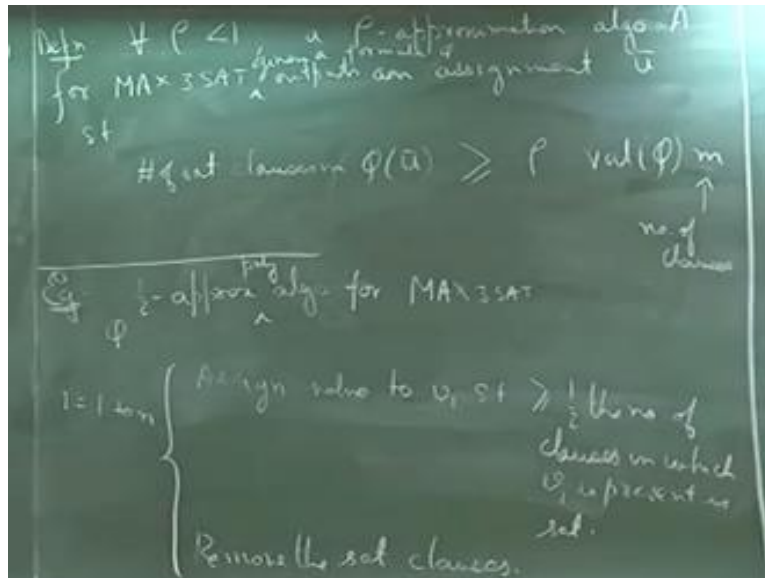 Defn ∀ ρ < 1 a ρ-approximation algo A
for MAX 3SAT given a formula φ outputs an assignment ū
st
# of sat clauses in φ(ū) ≥ ρ val(φ) m
↑
no. of
clauses
Eg ½-approx poly algo for MAX 3SAT
φ
i = 1 to n { Assign value to v₁ st ≥ ½ the no of
clauses in which
v₁ is present is
sat.
Remove the sat clauses.